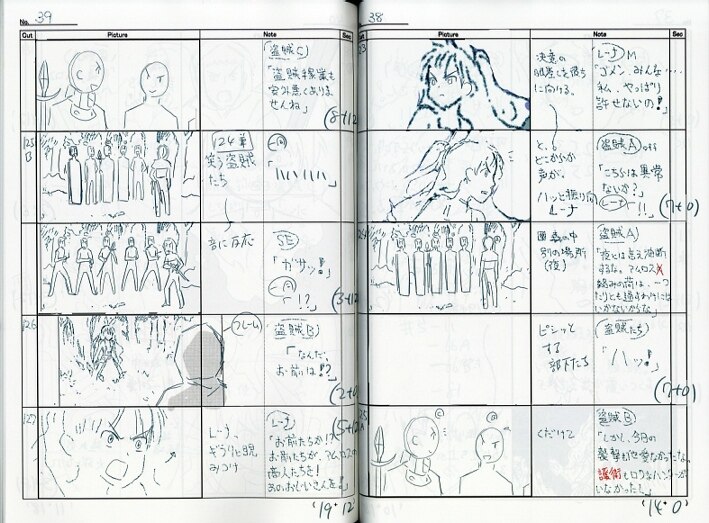 No. 38
Cut
Picture
Note
Sec
決意の
に向ける。
レーナ M
「ゴメン、みんな…
私、やっぱり
許せないの!」
と、
どこからか
声が。
ハッと振り向く
レーナ
盗賊A off
「こちらは異常
ないか?」
レーナ「!!」
(7+0)
別の場所
(夜)
盗賊A)
「夜とは言え油断
するな。アイロス
いかないからな」
ピシッと
する
部下たち
盗賊たち
「ハッ!」
(7+0)
125
A
くだけて
盗賊B
「しかし、今日の
護衛もロクなハンターが
いなかった!」
'14・0'
No. 39
Cut
Picture
Note
Sec
C
盗賊C
「盗賊稼業も
案外悪くありま
せんね」
(8+12)
125
B
124兼
笑う盗賊
たち
一同
「ハハハハ」
音に反応
SE
「ガサッ!」
一同
「!?」
(3+12)
126
フレーム
盗賊B
「なんだ、
お前は!?」
(2+0)
127
レーナ、
ギラリと睨
みつけ
レーナ
「お前たちか!?
お前たちが、アイロスの
商人たちを!
あのおじいさんを!」
(5+12)
'19・12'